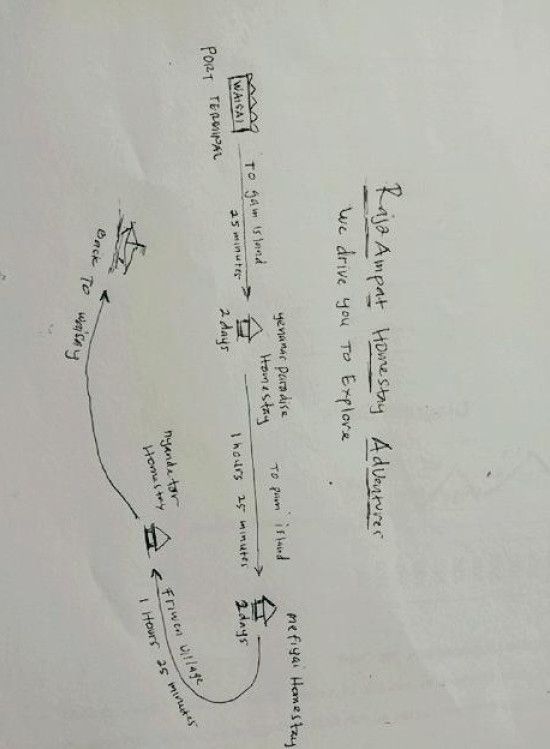 Raja Ampat Homestay Adventures
We drive you To Explore
WAISAI
PORT TERMINAL
To gam island
25 minutes
yenanas paradise
Homestay
2 days
To pam island
1 hours 25 minutes
mefiyai Homestay
2 days
Friwen Village
1 Hours 25 minutes
nyandetor
Homestay
Back To waisay